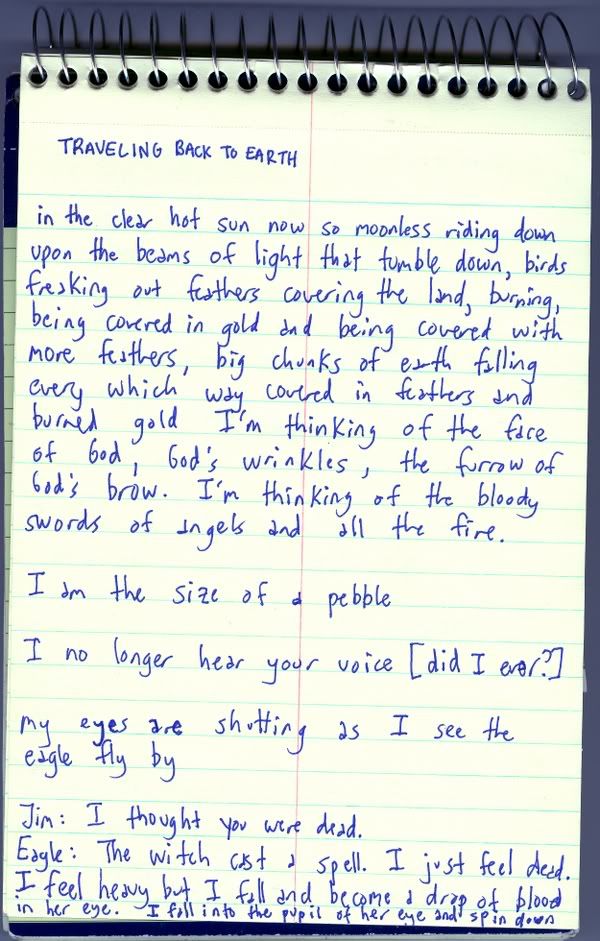 TRAVELING BACK TO EARTH
in the clear hot sun now so moonless riding down
upon the beams of light that tumble down, birds
freaking out feathers covering the land, burning,
being covered in gold and being covered with
more feathers, big chunks of earth falling
every which way covered in feathers and
burned gold I'm thinking of the face
of God, God's wrinkles, the furrow of
God's brow. I'm thinking of the bloody
swords of angels and all the fire.
I am the size of a pebble
I no longer hear your voice [did I ever?]
my eyes are shutting as I see the
eagle fly by
Jim: I thought you were dead.
Eagle: The witch cast a spell. I just feel dead.
I feel heavy but I fall and become a drop of blood
in her eye. I fall into the pupil of her eye and spin down